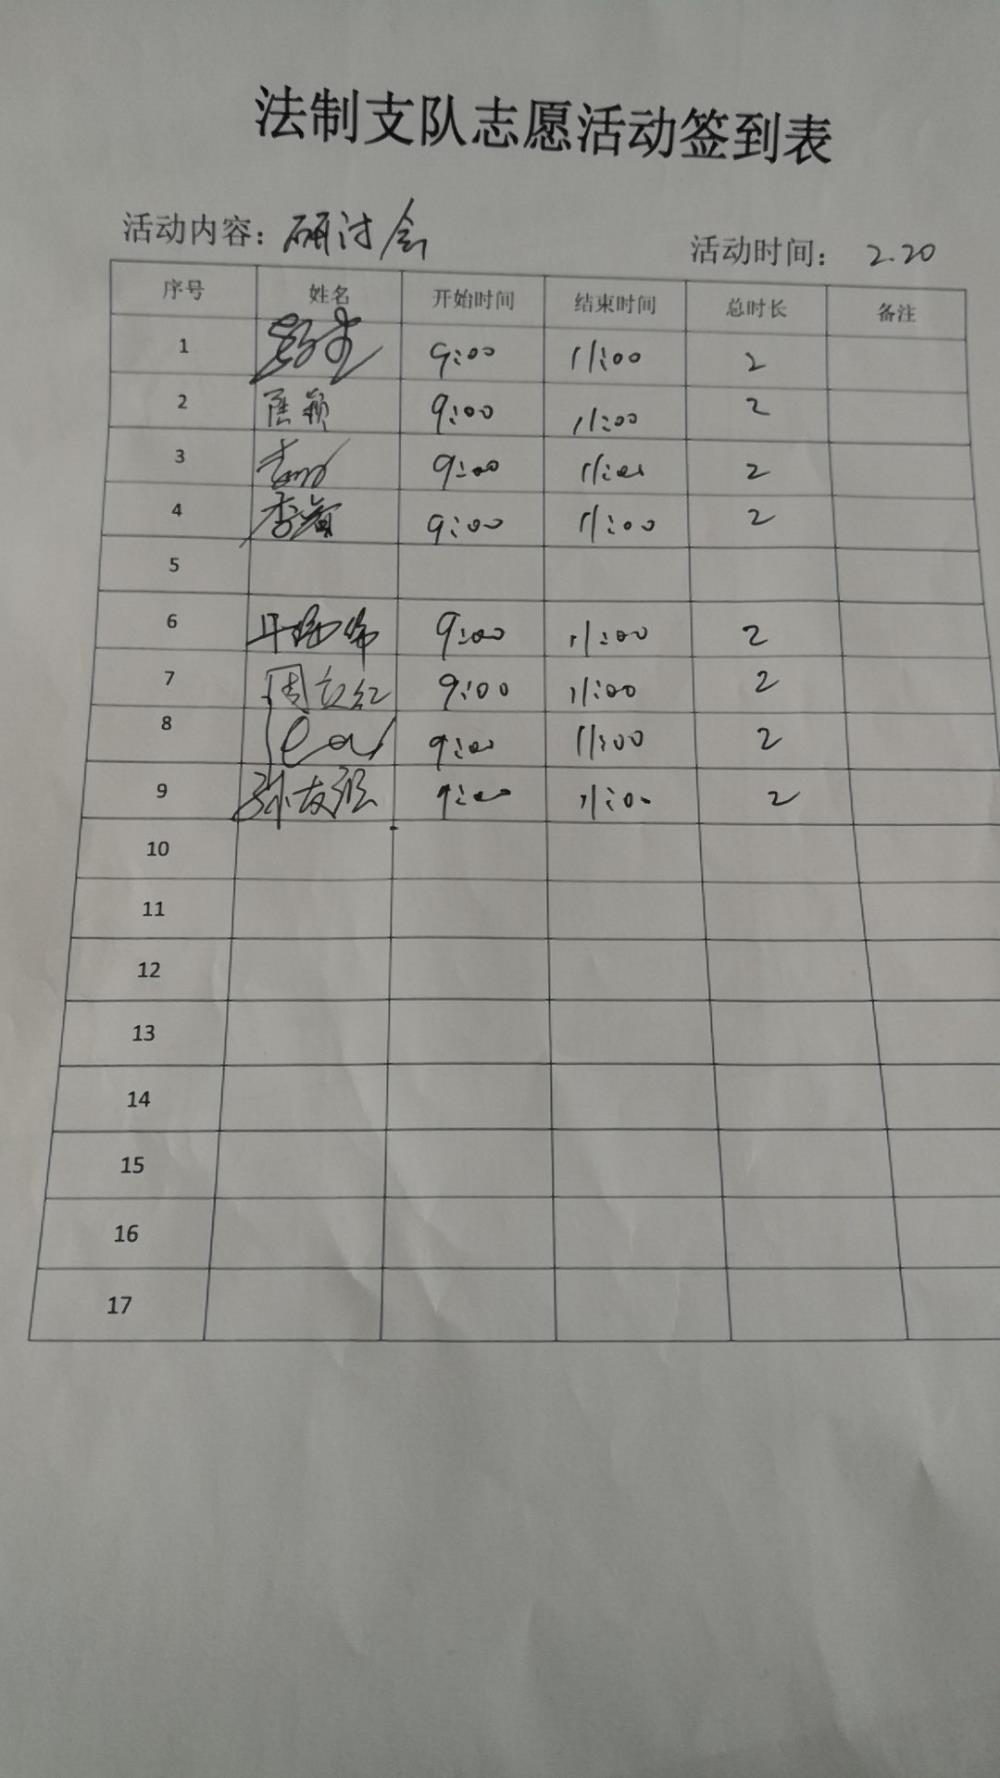 法制支队志愿活动签到表
活动内容：研讨会 活动时间：2.20
序号 姓名 开始时间 结束时间 总时长 备注
1 9:00 11:00 2
2 9:00 11:00 2
3 9:00 11:00 2
4 9:00 11:00 2
5
6 9:00 11:00 2
7 周立红 9:00 11:00 2
8 9:00 11:00 2
9 9:00 11:00 2
10
11
12
13
14
15
16
17